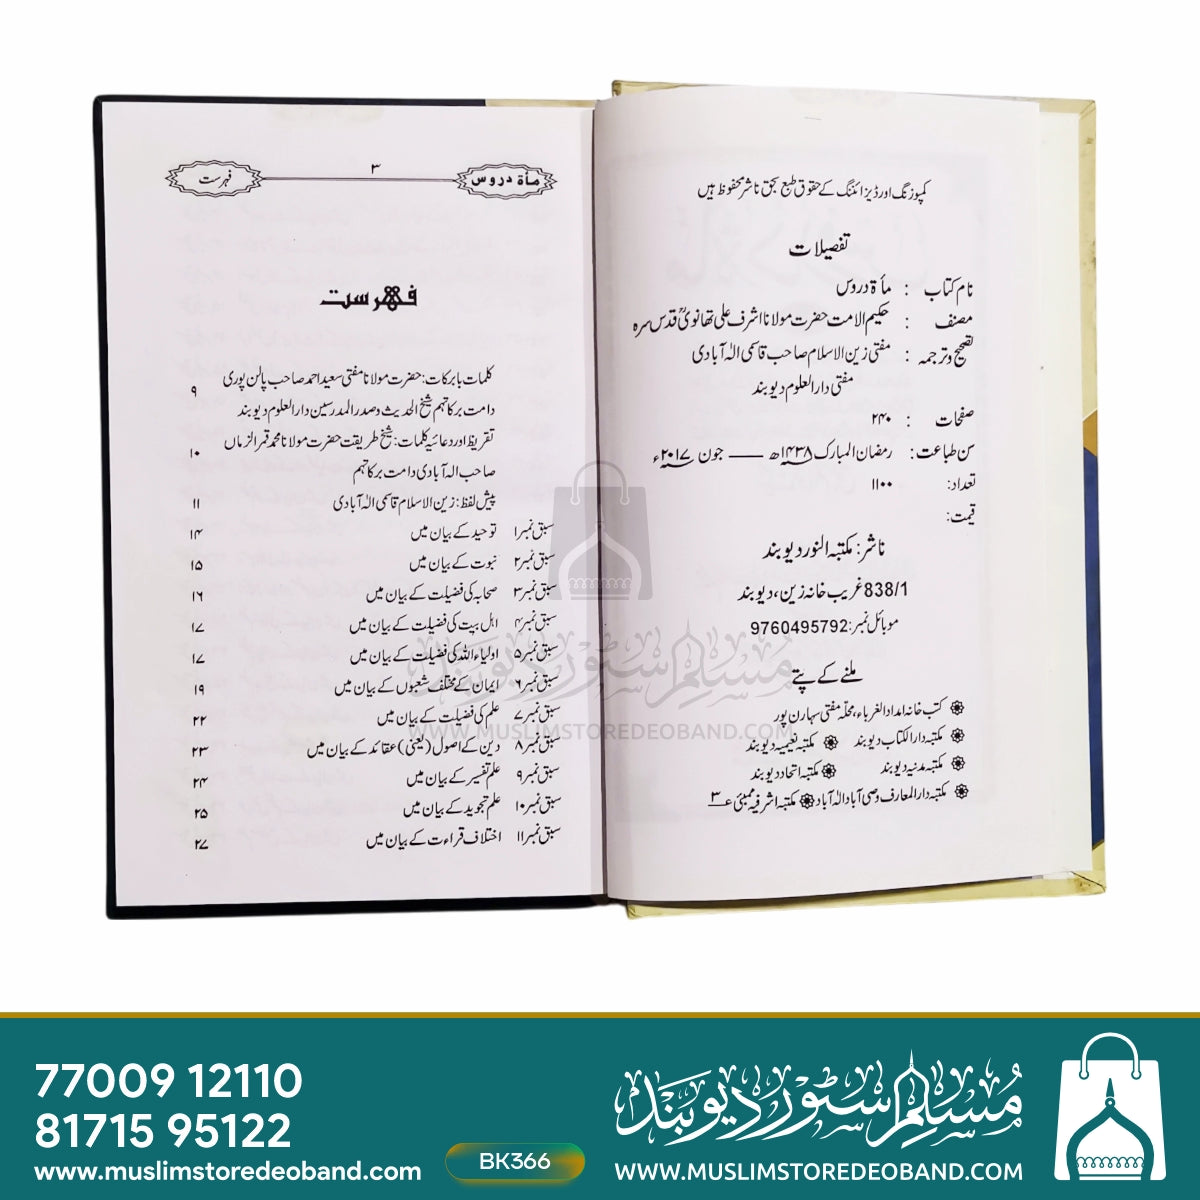 کمپوزنگ اور ڈیزائننگ کے حقوق طبع بحق ناشر محفوظ ہیں
تفصیلات
نام کتاب : مأۃ دروس
مصنف : حکیم الامت حضرت مولانا اشرف علی تھانویؒ قدس سرہ
تصحیح و ترجمہ : مفتی زین الاسلام صاحب قاسمی الٰہ آبادی
مفتی دار العلوم دیوبند
صفحات : ۲۴۰
سن طباعت : رمضان المبارک ۱۴۳۸ھ —— جون ۲۰۱۷ء
تعداد: ۱۱۰۰
قیمت:
ناشر: مکتبہ النور دیوبند
838/1 غریب خانہ زین، دیوبند
موبائل نمبر: 9760495792
ملنے کے پتے
کتب خانہ امداد الغرباء، محلّہ مفتی سہارن پور
مکتبہ دار الکتاب دیوبند مکتبہ نعیمیہ دیوبند
مکتبہ مدنیہ دیوبند مکتبہ اتحاد دیوبند
مکتبہ دار المعارف وصی آباد الٰہ آباد مکتبہ اشرفیہ ممبئی ۳
مأۃ دروس ۳ فہرست
فہرست
کلمات بابرکات: حضرت مولانا مفتی سعید احمد صاحب پالن پوری
دامت برکاتہم شیخ الحدیث و صدر المدرسین دار العلوم دیوبند ۹
تقریظ اور دعائیہ کلمات: شیخ طریقت حضرت مولانا محمد قمر الزماں
صاحب الہ آبادی دامت برکاتہم ۱۰
پیش لفظ: زین الاسلام قاسمی الٰہ آبادی ۱۱
سبق نمبر۱ توحید کے بیان میں ۱۴
سبق نمبر۲ نبوت کے بیان میں ۱۵
سبق نمبر۳ صحابہ کی فضیلت کے بیان میں ۱۶
سبق نمبر۴ اہل بیت کی فضیلت کے بیان میں ۱۷
سبق نمبر۵ اولیاء اللہ کی فضیلت کے بیان میں ۱۷
سبق نمبر۶ ایمان کے مختلف شعبوں کے بیان میں ۱۹
سبق نمبر۷ علم کی فضیلت کے بیان میں ۲۲
سبق نمبر۸ دین کے اصول (یعنی) عقائد کے بیان میں ۲۳
سبق نمبر۹ علم تفسیر کے بیان میں ۲۴
سبق نمبر۱۰ علم تجوید کے بیان میں ۲۵
سبق نمبر۱۱ اختلاف قراءت کے بیان میں ۲۷
مسلم سٹور دیوبند
WWW.MUSLIMSTOREDEOBAND.COM
77009 12110
81715 95122
www.muslimstoredeoband.com
BK366
مسلم سٹور دیوبند
WWW.MUSLIMSTOREDEOBAND.COM